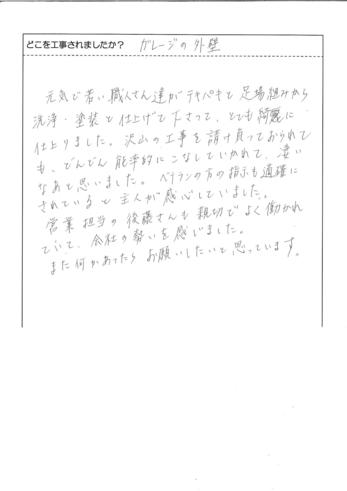 どこを工事されましたか？ ガレージの外壁
元気で若い職人さん達がテキパキと足場組みから
洗浄・塗装と仕上げて下さって、とても綺麗に
仕上りました。沢山の工事を請け負っておられて
も、どんどん能率的にこなしていかれて、凄い
なあと思いました。ベテランの方の指示も適確に
されていると主人が感心していました。
営業担当の後藤さんも親切でよく働かれ
ていて、会社の勢いを感じました。
また何かあったらお願いしたいと思っています。